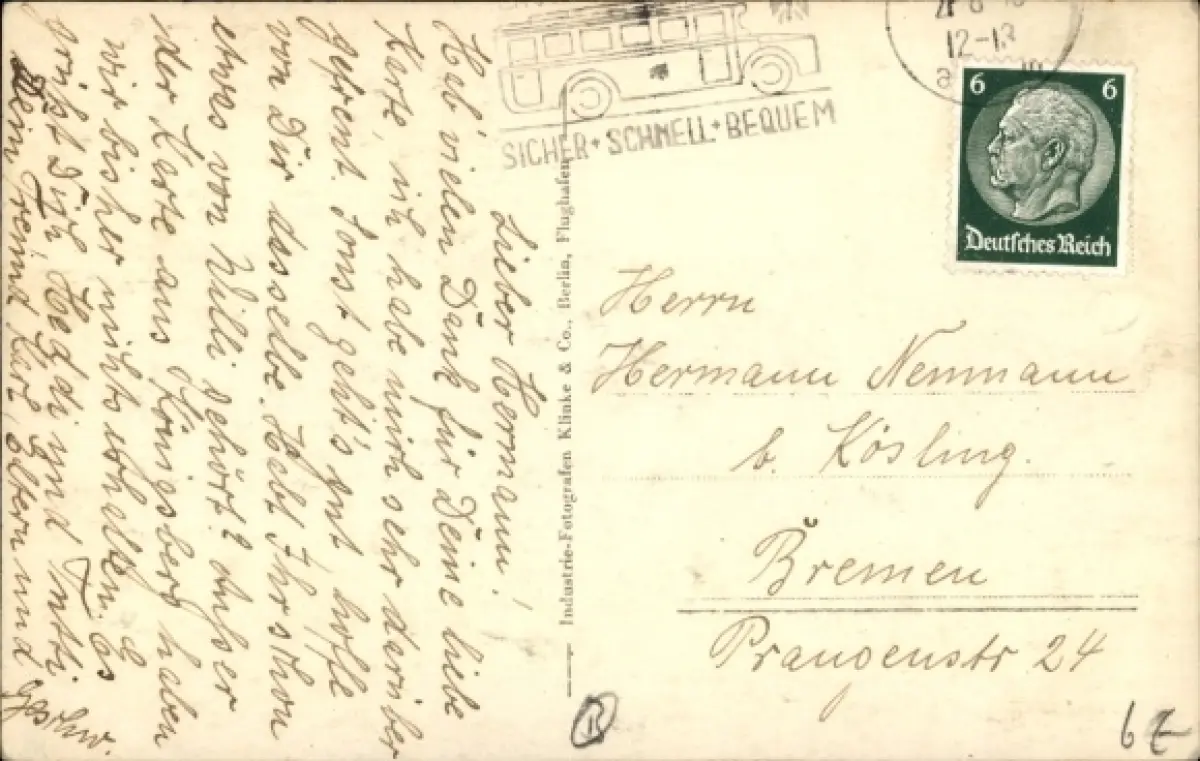 Lieber Hermann!
Hab' vielen Dank für Deine liebe
Karte, ich habe mich sehr darüber
gefreut. Sonst geht's gut hoffe
von Dir dasselbe. Habt Ihr schon
etwas von Willi gehört? außer
der Karte aus Königsberg haben
wir bisher nichts erhalten. Es
grüßt Dich Heddi und Tutti
Dein Freund Karl, Eltern und
Geschw.
Industrie-Fotografen Klinke & Co., Berlin, Flughafen
SICHER + SCHNELL + BEQUEM
12-13
a
6 6
Deutsches Reich
Herrn
Hermann Neumann
b. Kösling.
Bremen
Prangenstr 24
6